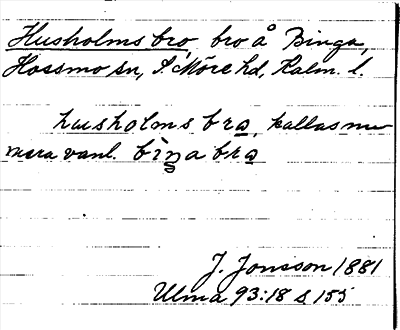 Husholmsbro, bro å Binga,
Hossmo sn, S. Möre hd, Kalm. l.
husholms bro, kallas nu
mera vanl. biŋa bro
J. Jonsson 1881
Ulma 93:18 s 155